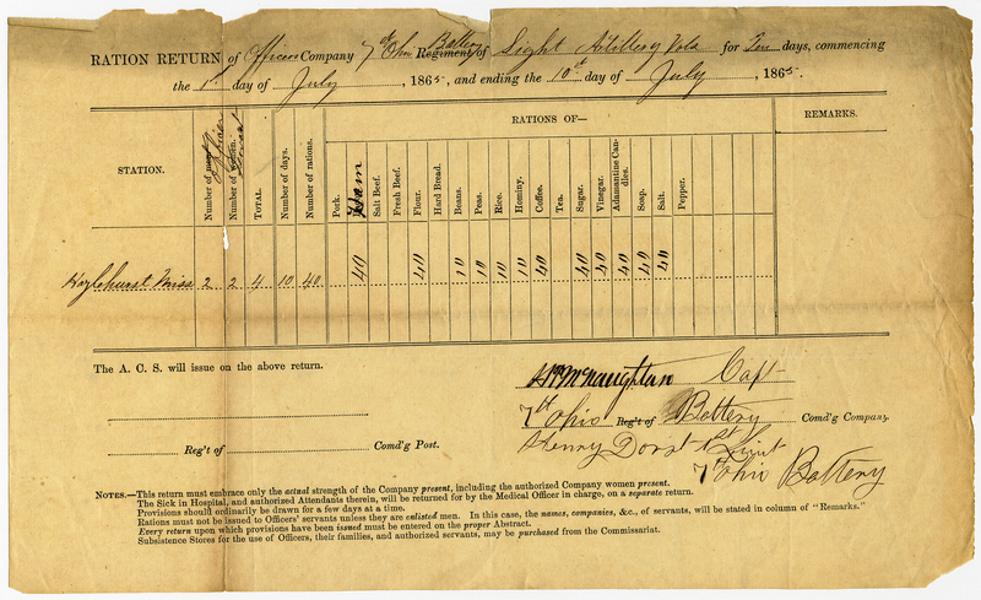 RATION RETURN of Officers Company 7th Ohio Battery Regiment of Light Artillery Vols for Ten days, commencing
the 1st day of July, 1865, and ending the 10th day of July, 1865.
STATION.
Number of men Officers
Number of women. Servant
TOTAL.
Number of days.
Number of rations.
RATIONS OF—
Pork.
Ham
Salt Beef.
Fresh Beef.
Flour.
Hard Bread.
Beans.
Peas.
Rice.
Hominy.
Coffee.
Tea.
Sugar.
Vinegar.
Adamantine Candles.
Soap.
Salt.
Pepper.
REMARKS.
Hazlehurst Miss 2 2 4 10 40 40 40 10 10 10 10 40 40 40 40 40 40
The A. C. S. will issue on the above return.
McNaughton Capt
7th Ohio Reg't of Battery Comd'g Company.
Henry Dorst 1st Lieut
7th Ohio Battery
Reg't of Comd'g Post.
NOTES.—This return must embrace only the actual strength of the Company present, including the authorized Company women present.
The Sick in Hospital, and authorized Attendants therein, will be returned for by the Medical Officer in charge, on a separate return.
Provisions should ordinarily be drawn for a few days at a time.
Rations must not be issued to Officers' servants unless they are enlisted men. In this case, the names, companies, &c., of servants, will be stated in column of "Remarks."
Every return upon which provisions have been issued must be entered on the proper Abstract.
Subsistence Stores for the use of Officers, their families, and authorized servants, may be purchased from the Commissariat.